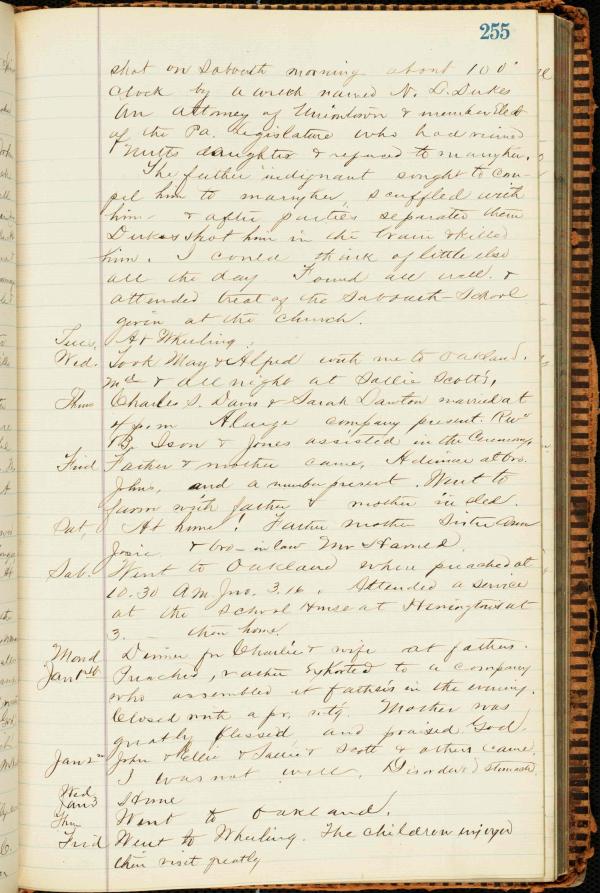 255
shot on Sabbath morning about 10 O'
clock by a wretch named N. L. Dukes
An Attorney of Uniontown & member Elect
of the Pa. legislature who had ruined
Nutts daughter & refused to marry her.
The father indignant sought to com-
pel him to marry her, scuffled with
him & after parties separated them
Dukes shot him in the brain & killed
him. I could think of little else
all the day Found all well &
attended treat of the Sabbath-School
given at the church.
Tues. At Wheeling.
Wed. Took May & Alfred with me to Oakland.
& all night at Sallie Scott's,
Thurs Charles S. Davis & Sarah Dawton married at
4 p.m A large company present. Revs
B. Ison & Jones assisted in the Ceremony
Frid Father & mother came, A dinner at bro.
Johns, and a number present. Went to
farm with father & mother in sled
Sat, At home! Father mother Sister Ann
Josie & bro-in law Mr Harned
Sab. Went to Oakland when preached at
10.30 A.M. Jno. 3.16. Attended a service
at the School House at at
3. then home.
Mond Jan 1st Dinner for Charlie & wife at fathers.
Preached, rather Exhorted to a company
who assembled at father's in the evening.
Closed with a pr. mtg. Mother was
greatly blessed and praised God.
Jan 2nd John & Ellie & Sallie Scott & others came.
I was not well. Disordered stomach
Wed Jan 3 Home
Thu Went to Oakland.
Frid Went to Wheeling. The children enjoyed
their visit greatly